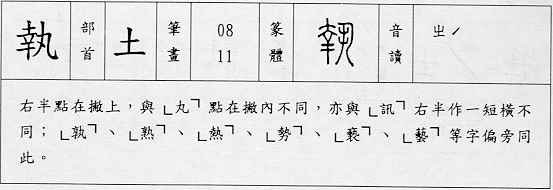 執 部首 土 筆畫 08 11 篆體 執 音讀 ㄓˊ
右半點在撇上，與「丸」點在撇內不同，亦與「訊」右半作一短橫不
同；「孰」、「熟」、「熱」、「勢」、「褻」、「藝」等字偏旁同
此。